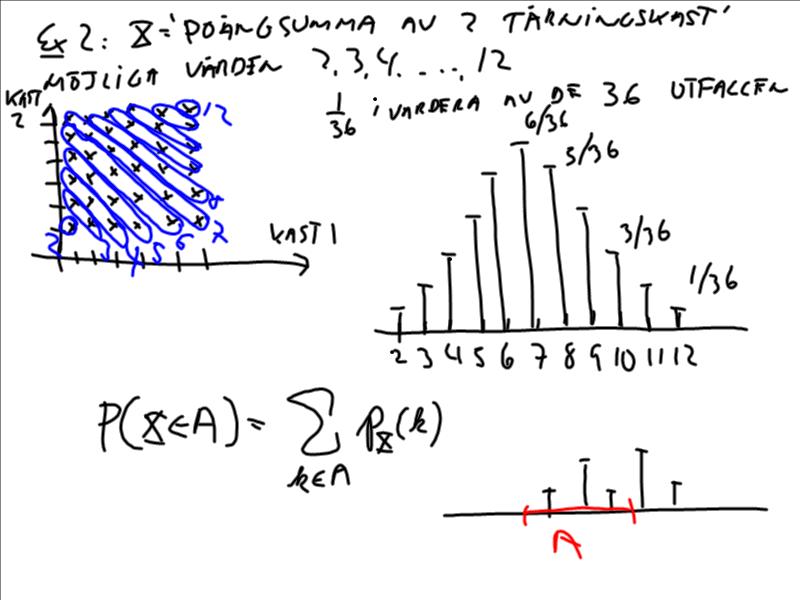 Ex 2: X='POÄNGSUMMA AV 2 TÄRNINGSKAST'
MÖJLIGA VÄRDEN 2,3,4,...,12
1/36 I VARDERA AV DE 36 UTFALLEN
KAST 2
12
8
7
2 3 4 5 6
KAST 1
6/36
5/36
3/36
1/36
2 3 4 5 6 7 8 9 10 11 12
P(X∈A) = ∑ p_X(k)
k∈A
A